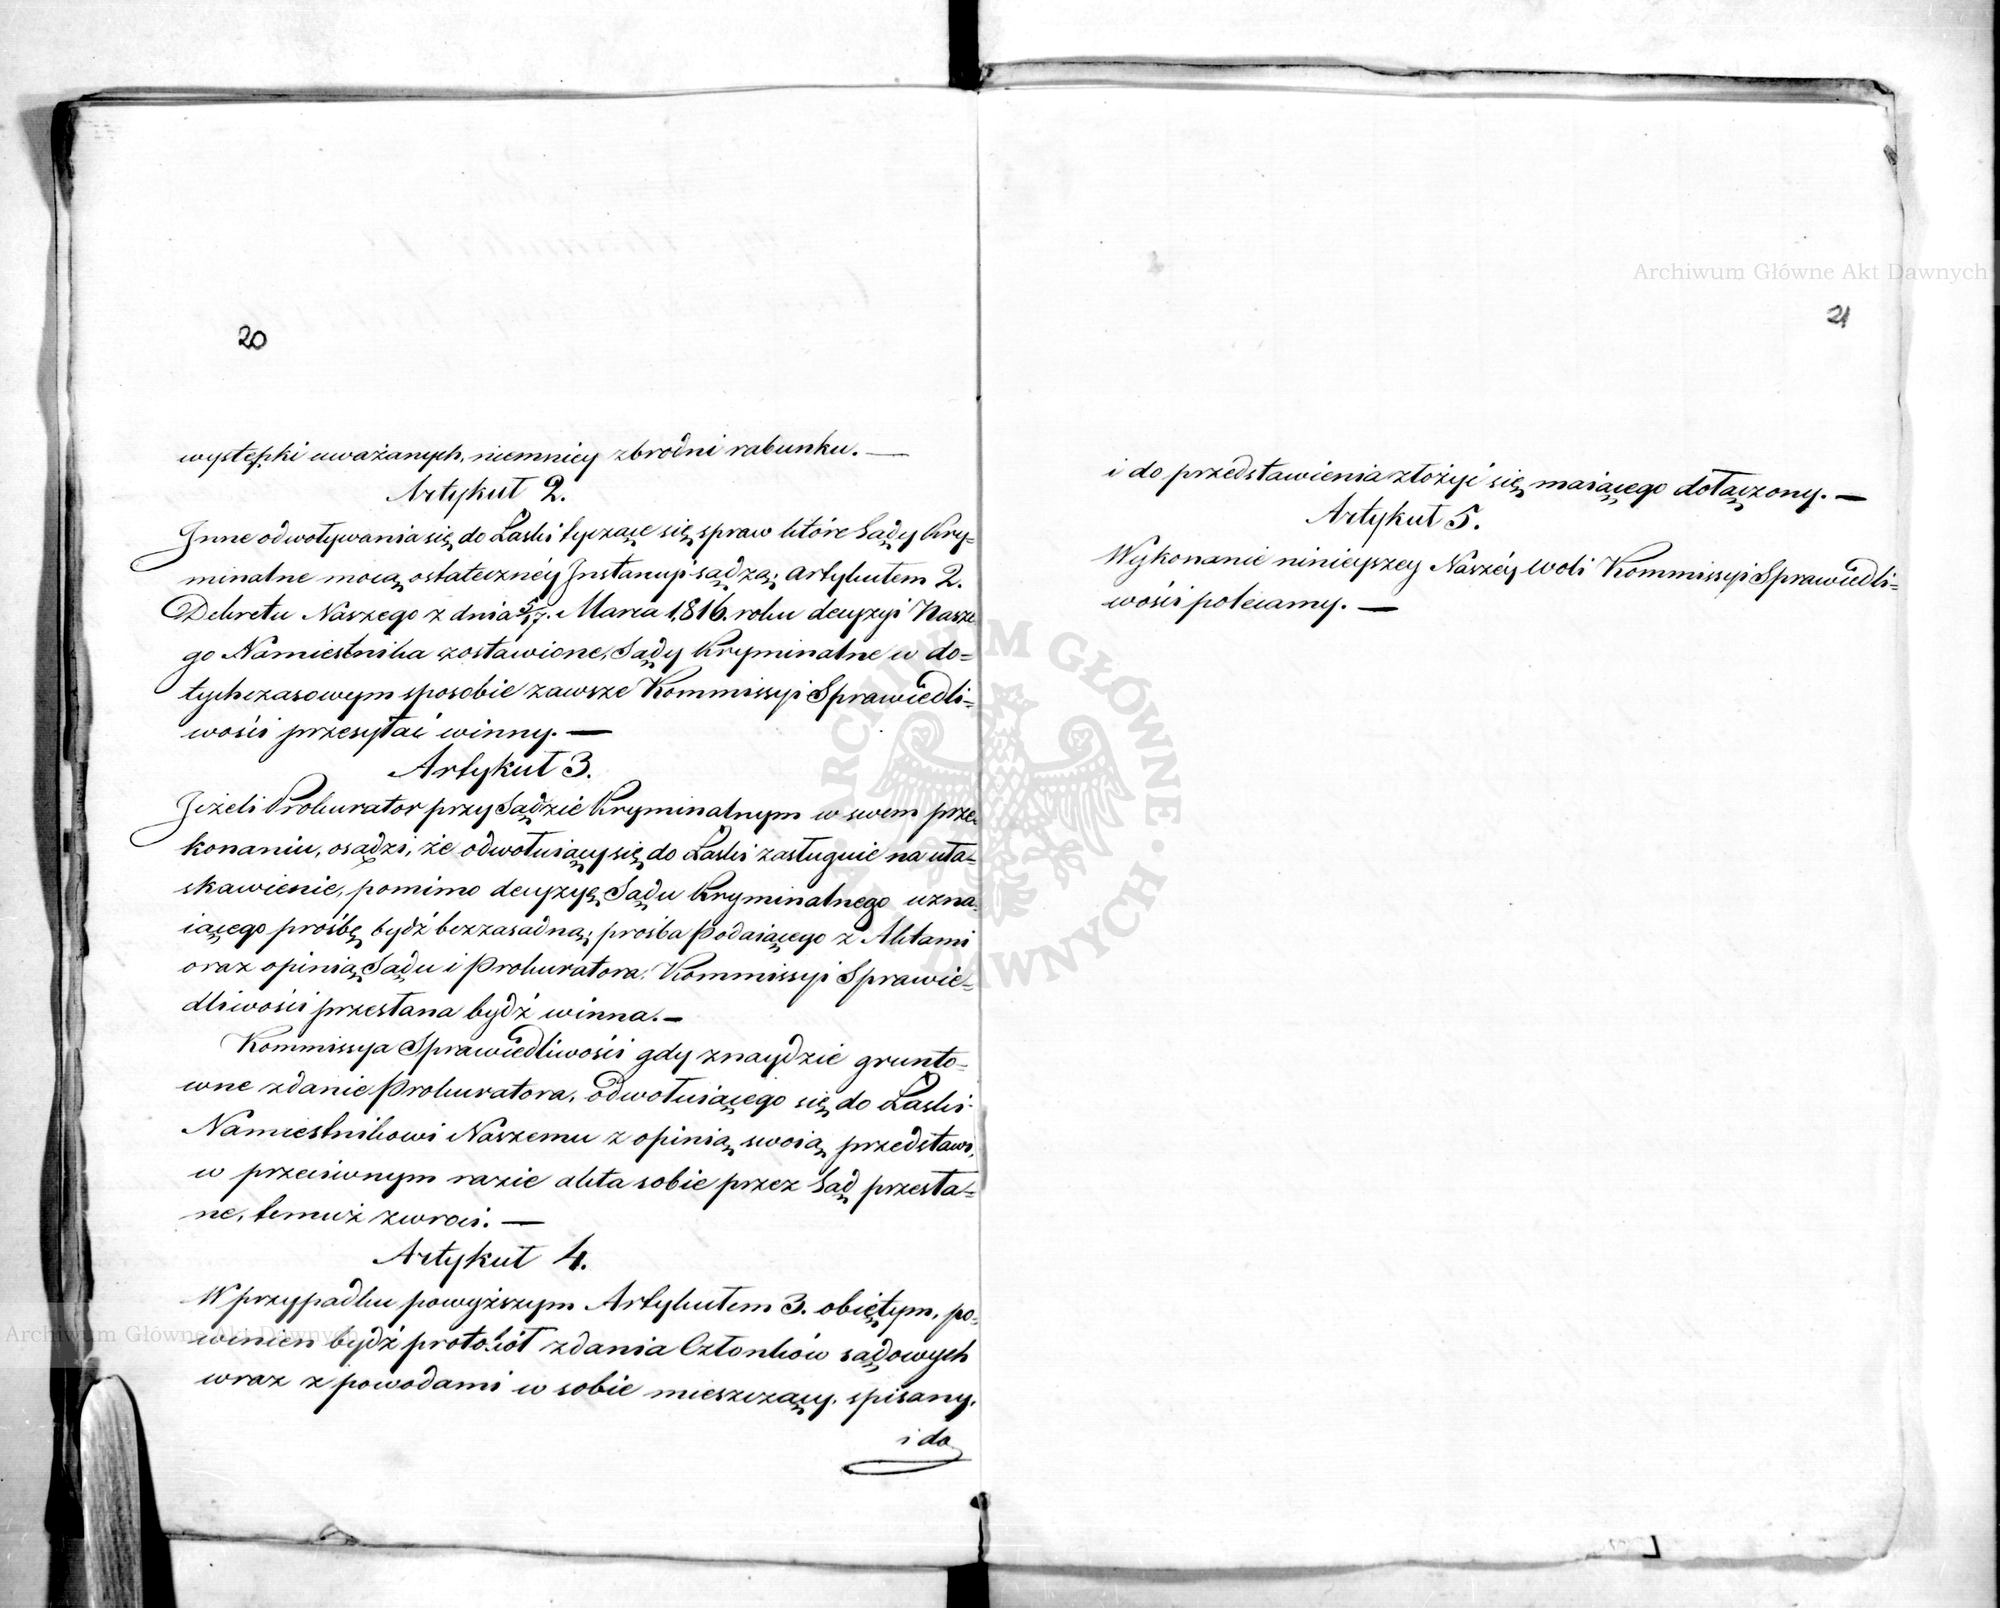 20
występki uważanych, niemniey zbrodni rabunku. —
Artykuł 2.
Jnne odwoływania się do Łaski tyczące się spraw które Sądy Kry=
minalne mocą ostateczney Jnstancyi sądzą; artykułem 2.
Dekretu Naszego z dnia 5/17. Marca 1816. roku decyzyi Nasze
go Namiestnika zostawione, Sądy Kryminalne w do=
tychczasowym sposobie zawsze Kommissyi Sprawiedli=
wości przesyłać winny. —
Artykuł 3.
Jeżeli Prokurator przy Sądzie Kryminalnym w swem prze=
konaniu, osądzi, że odwołuiący się do Łaski zasługuie na uła=
skawienie, pomimo decyzyę Sądu Kryminalnego uzna=
iącego prośbę bydź bezzasadną; prośba Podaiącego z Aktami
oraz opinią Sądu i Prokuratora, Kommissyi Sprawie=
dliwości przesłana bydź winna. —
Kommissya Sprawiedliwości gdy znaydzie grunto=
wne zdanie Prokuratora, odwołuiącego się do Łaski
Namiestnikowi Naszemu z opinią swoią przedstawi,
w przeciwnym razie akta sobie przez Sąd przesła=
ne, temuż zwróci. —
Artykuł 4.
W przypadku powyższym Artykułem 3. obiętym, po=
winien bydź protokół zdania Członków sądowych
wraz z powodami w sobie mieszczący, spisany,
i do
21
i do przedstawienia złożyć się maiącego dołączony. —
Artykuł 5.
Wykonanie ninieyszey Naszéy woli Kommissyi Sprawiedli=
wości polecamy. —
Archiwum Główne Akt Dawnych
Archiwum Główne Akt Dawnych
ARCHIWUM GŁÓWNE AKT DAWNYCH